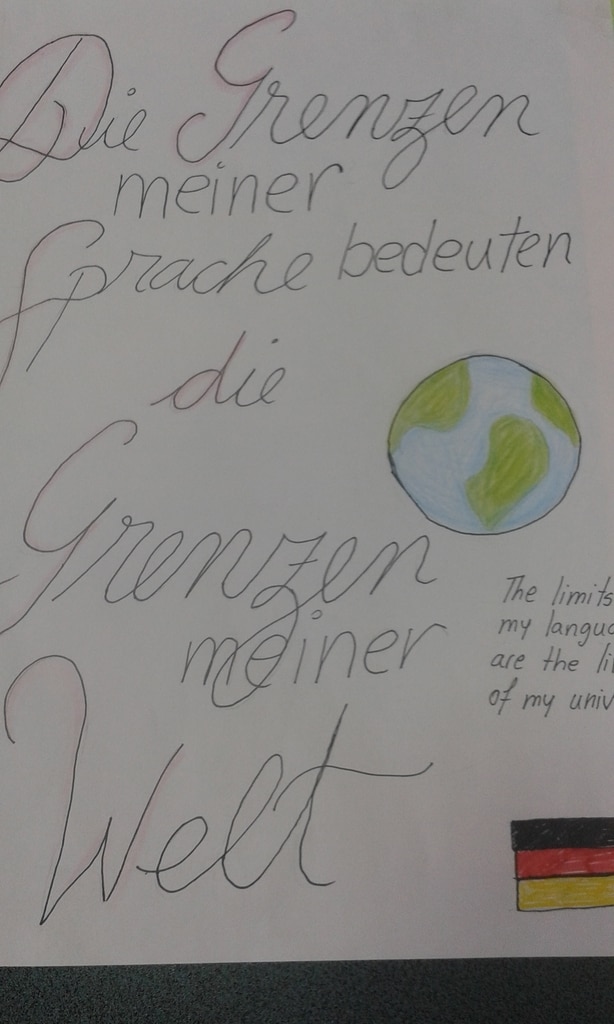 Die Grenzen
meiner
Sprache bedeuten
die
Grenzen
meiner
Welt
The limits
my langua
are the li
of my univ